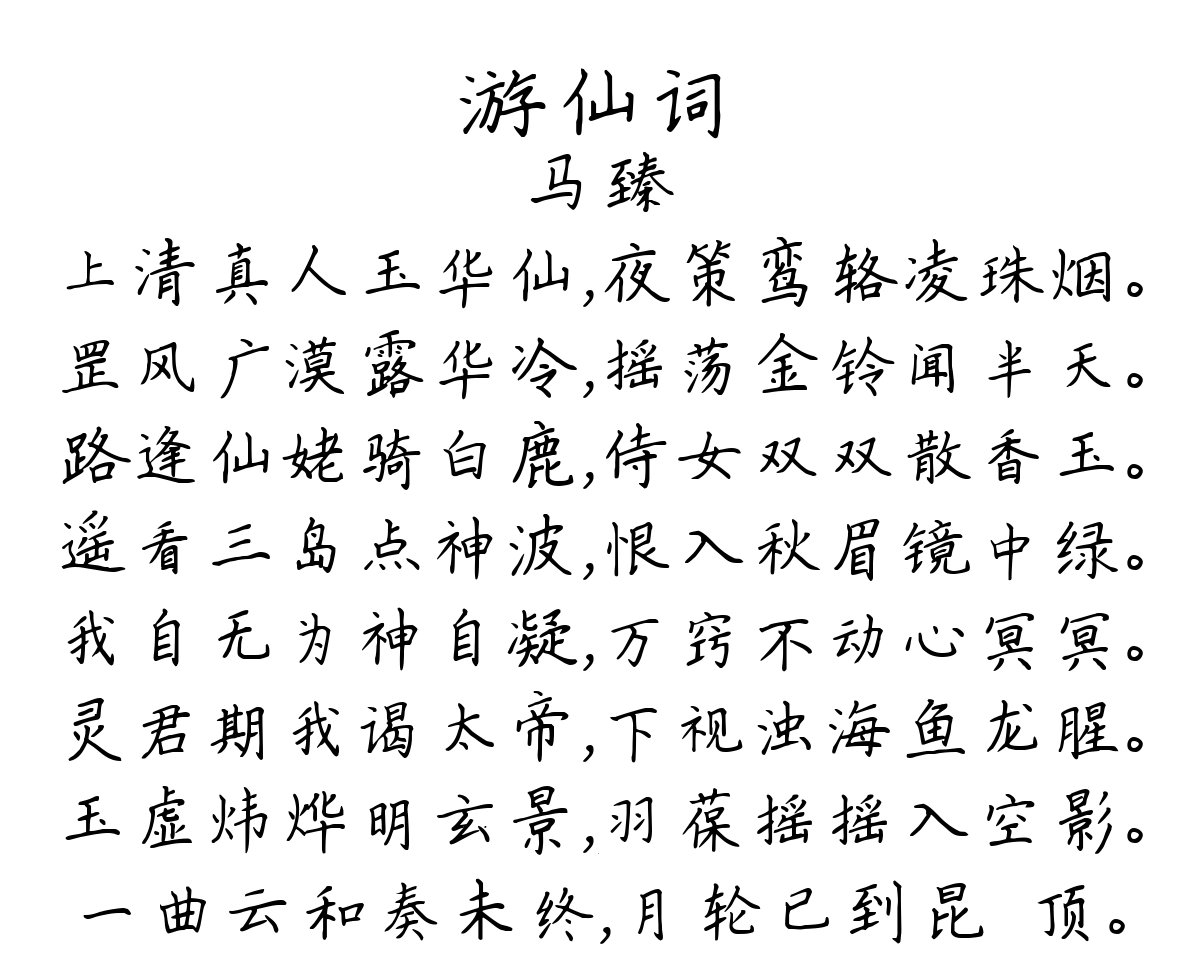 游仙词
马臻
上清真人玉华仙,夜策鸾辂凌珠烟。
罡风广漠露华冷,摇荡金铃闻半天。
路逢仙姥骑白鹿,侍女双双散香玉。
遥看三岛点神波,恨入秋眉镜中绿。
我自无为神自凝,万窍不动心冥冥。
灵君期我谒太帝,下视浊海鱼龙腥。
玉虚炜烨明玄景,羽葆摇摇入空影。
一曲云和奏未终,月轮已到昆 顶。